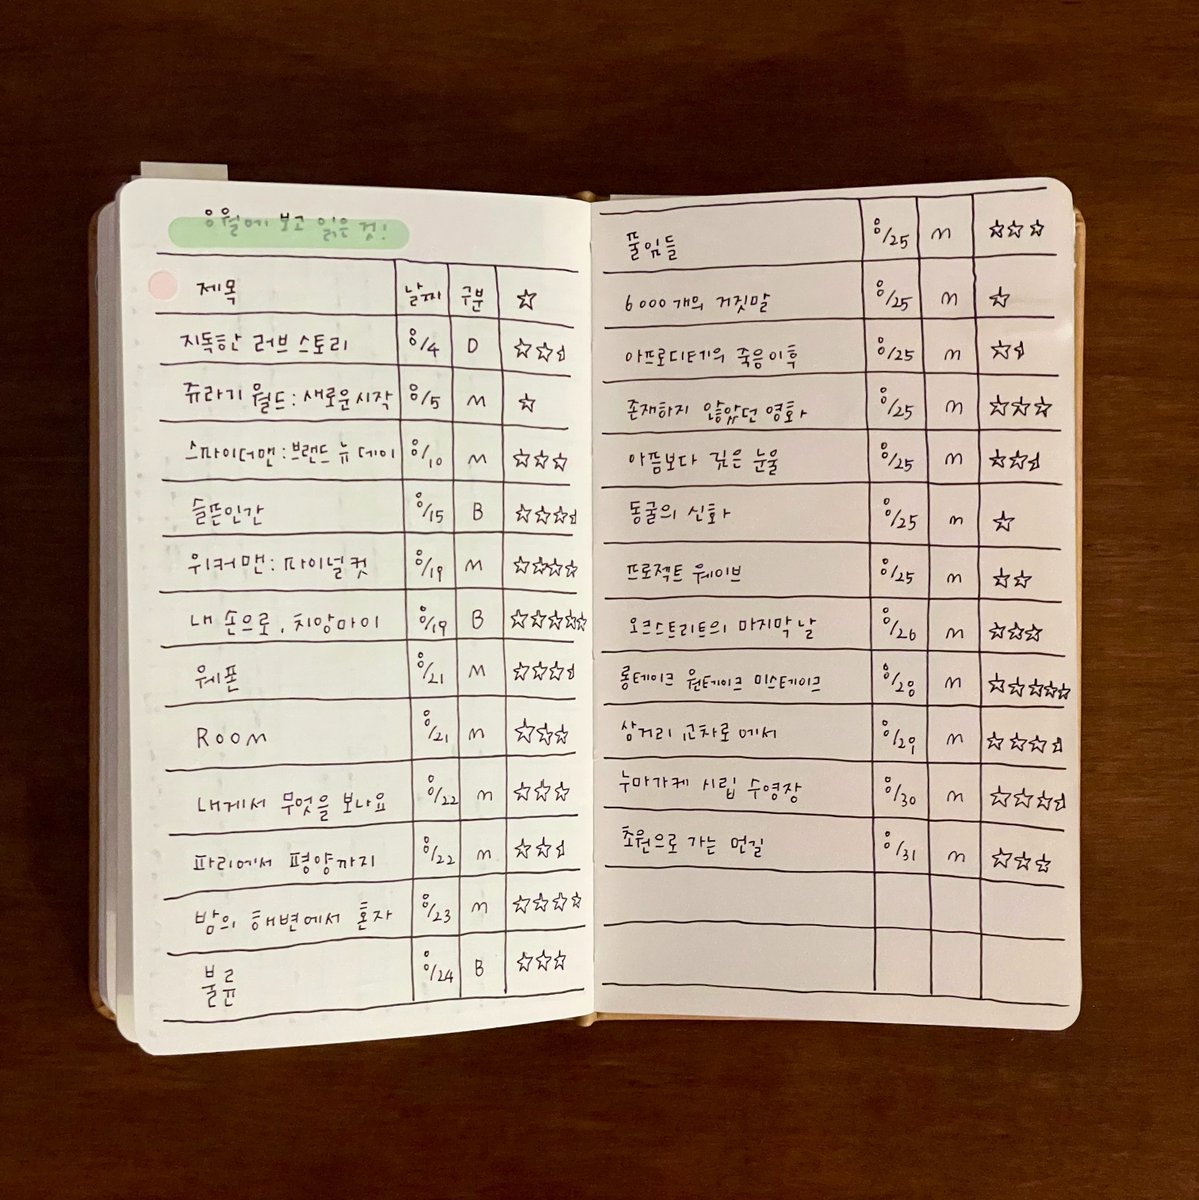 8월에 보고 읽은 것!
제목 날짜 구분 ☆
지독한 러브 스토리 8/4 D ☆☆⯨
쥬라기 월드: 새로운 시작 8/5 M ☆
스파이더맨: 브랜드 뉴 데이 8/10 M ☆☆☆
슬픈인간 8/15 B ☆☆☆⯨
위커맨: 파이널컷 8/19 M ☆☆☆☆
내 손으로, 치앙마이 8/19 B ☆☆☆☆☆
웨폰 8/21 M ☆☆☆⯨
ROOM 8/21 M ☆☆☆
내게서 무엇을 보나요 8/22 M ☆☆☆
파리에서 평양까지 8/22 M ☆☆⯨
밤의 해변에서 혼자 8/23 M ☆☆☆☆
불륜 8/24 B ☆☆☆
풀잎들 8/25 M ☆☆☆
6000개의 거짓말 8/25 M ☆
아프로디테의 죽음이후 8/25 M ☆⯨
존재하지 않았던 영화 8/25 M ☆☆☆
아픔보다 깊은 눈물 8/25 M ☆☆⯨
동굴의 신화 8/25 M ☆
프로젝트 웨이브 8/25 M ☆☆
오크스트리트의 마지막 날 8/26 M ☆☆☆
롱테이크 원테이크 미스테이크 8/28 M ☆☆☆☆☆
삼거리 교차로에서 8/29 M ☆☆☆⯨
누마가케 시립 수영장 8/30 M ☆☆☆⯨
초원으로 가는 먼길 8/31 M ☆☆☆